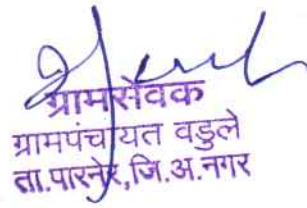 ग्रामसेवक
ग्रामपंचायत वडुले
ता.पारनेर,जि.अ.नगर